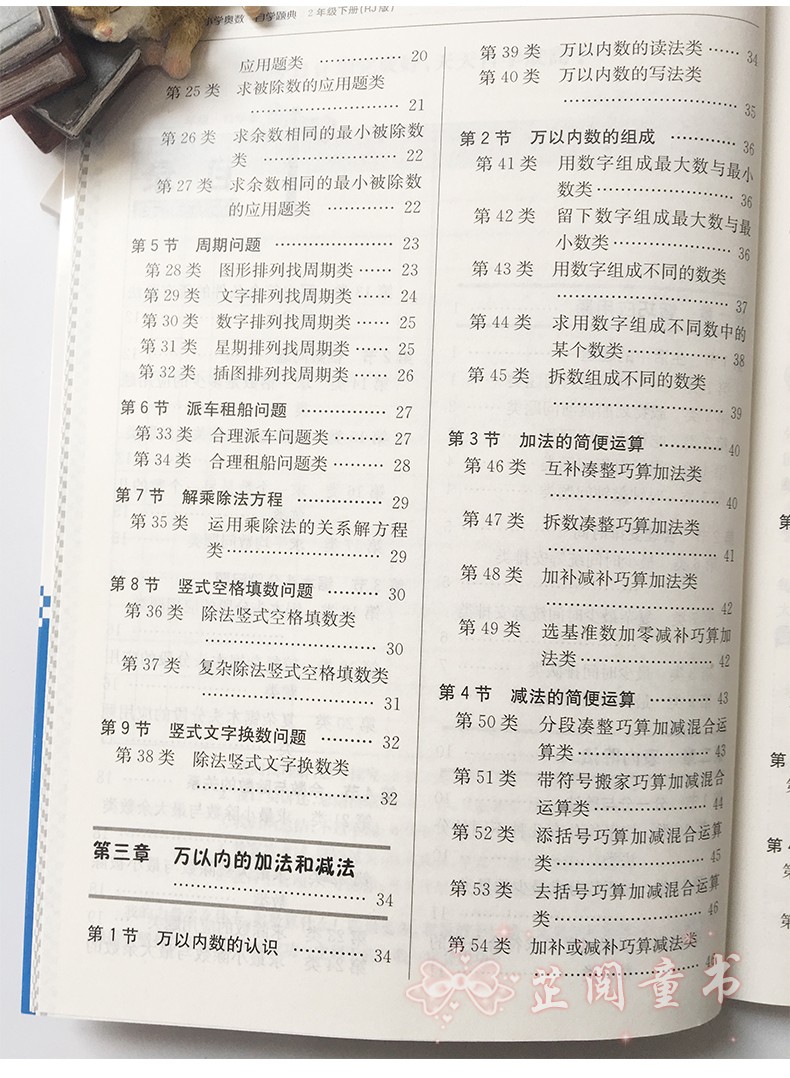 小学奥数 2年级下册(RJ版)
应用题类 …… 20
第25类 求被除数的应用题类
…… 21
第26类 求余数相同的最小被除数
类 …… 22
第27类 求余数相同的最小被除数
的应用题类 …… 22
第5节 周期问题 …… 23
第28类 图形排列找周期类 …… 23
第29类 文字排列找周期类 …… 24
第30类 数字排列找周期类 …… 25
第31类 星期排列找周期类 …… 25
第32类 插图排列找周期类 …… 26
第6节 派车租船问题 …… 27
第33类 合理派车问题类 …… 27
第34类 合理租船问题类 …… 28
第7节 解乘除法方程 …… 29
第35类 运用乘除法的关系解方程
类 …… 29
第8节 竖式空格填数问题 …… 30
第36类 除法竖式空格填数类
…… 30
第37类 复杂除法竖式空格填数类
…… 31
第9节 竖式文字换数问题 …… 32
第38类 除法竖式文字换数类
…… 32
第三章 万以内的加法和减法
…… 34
第1节 万以内数的认识 …… 34
第39类 万以内数的读法类 …… 34
第40类 万以内数的写法类
…… 35
第2节 万以内数的组成 …… 36
第41类 用数字组成最大数与最小
数类 …… 36
第42类 留下数字组成最大数与最
小数类 …… 36
第43类 用数字组成不同的数类
…… 37
第44类 求用数字组成不同数中的
某个数类 …… 38
第45类 拆数组成不同的数类
…… 39
第3节 加法的简便运算 …… 40
第46类 互补凑整巧算加法类
…… 40
第47类 拆数凑整巧算加法类
…… 41
第48类 加补减补巧算加法类
…… 42
第49类 选基准数加零减补巧算加
法类 …… 42
第4节 减法的简便运算 …… 43
第50类 分段凑整巧算加减混合运
算类 …… 43
第51类 带符号搬家巧算加减混合
运算类 …… 44
第52类 添括号巧算加减混合运算
类 …… 45
第53类 去括号巧算加减混合运算
类 …… 46
第54类 加补或减补巧算减法类
…… 46
芷阅童书